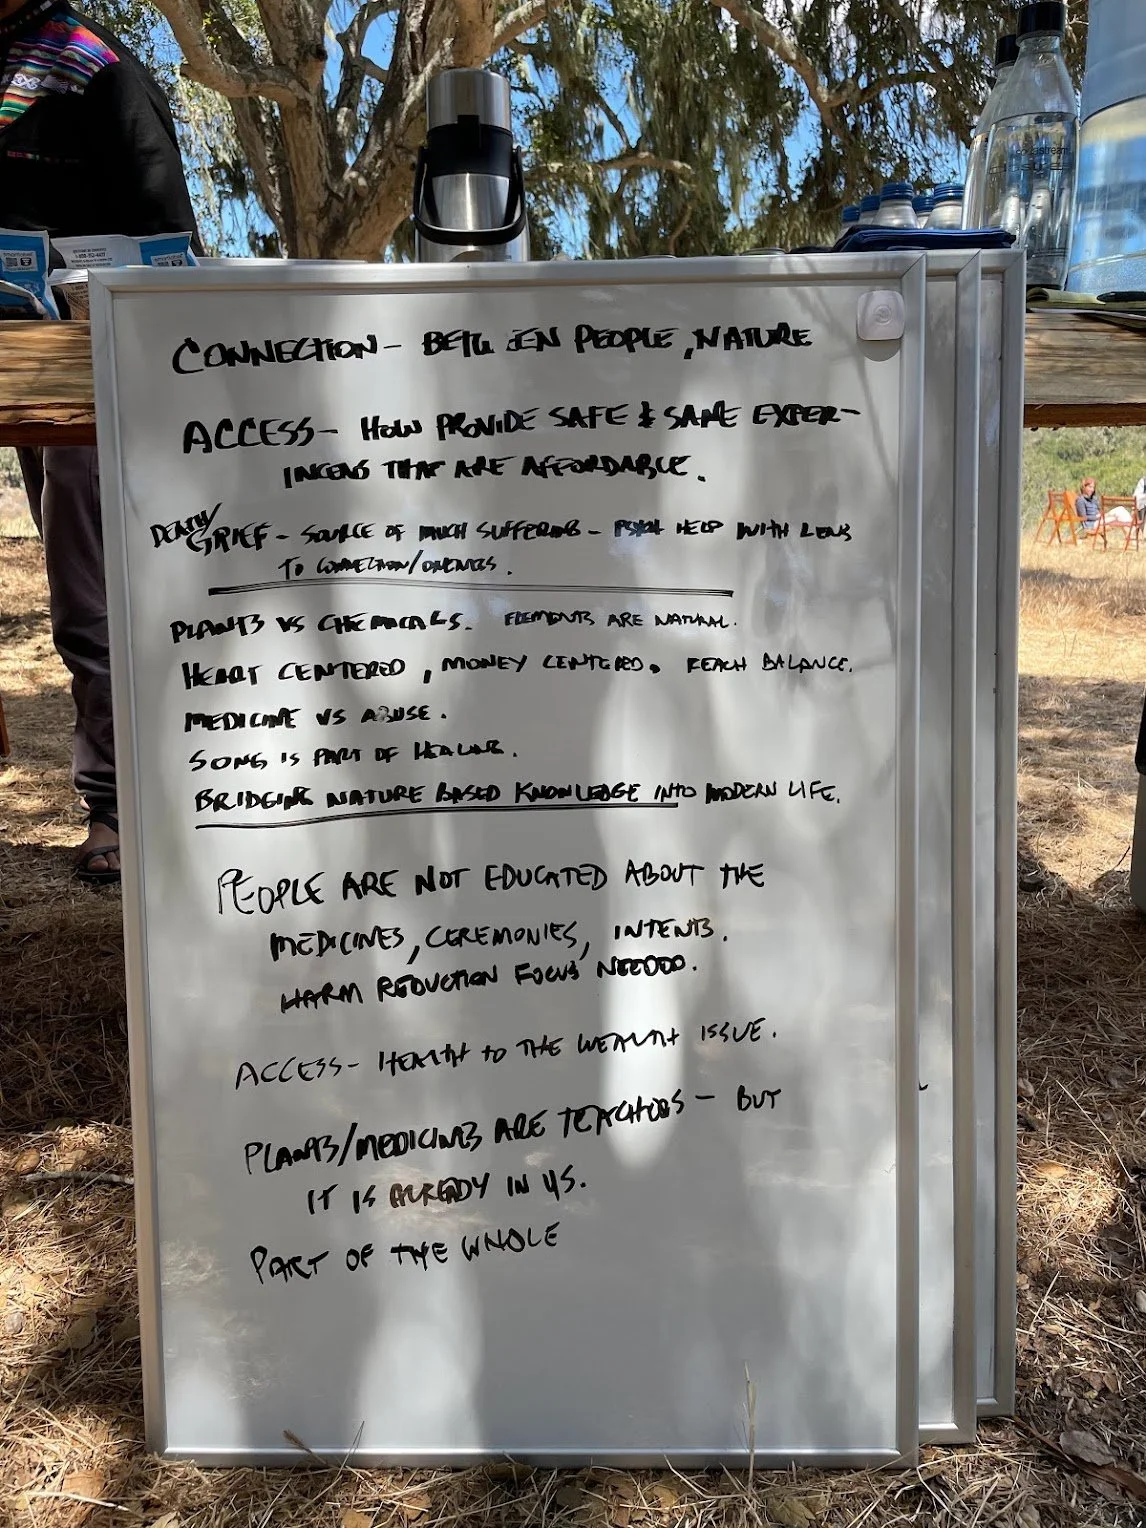 CONNECTION - BETWEEN PEOPLE, NATURE
ACCESS - HOW PROVIDE SAFE & SANE EXPER-
IENCES THAT ARE AFFORDABLE.
DEATH/
GRIEF - SOURCE OF MUCH SUFFERING - HELP WITH LENS
TO CONNECTION/
PLANTS VS CHEMICALS. ELEMENTS ARE NATURAL.
HEART CENTERED, MONEY CENTERED. REACH BALANCE.
MEDICINE VS ABUSE.
SONG IS PART OF HEALING.
BRIDGING NATURE BASED KNOWLEDGE INTO MODERN LIFE.
PEOPLE ARE NOT EDUCATED ABOUT THE
MEDICINES, CEREMONIES, INTENTS.
HARM REDUCTION FOCUS NEEDED.
ACCESS - HEALTH TO THE WEALTH ISSUE.
PLANTS/MEDICINES ARE TEACHERS - BUT
IT IS ALREADY IN US.
PART OF THE WHOLE